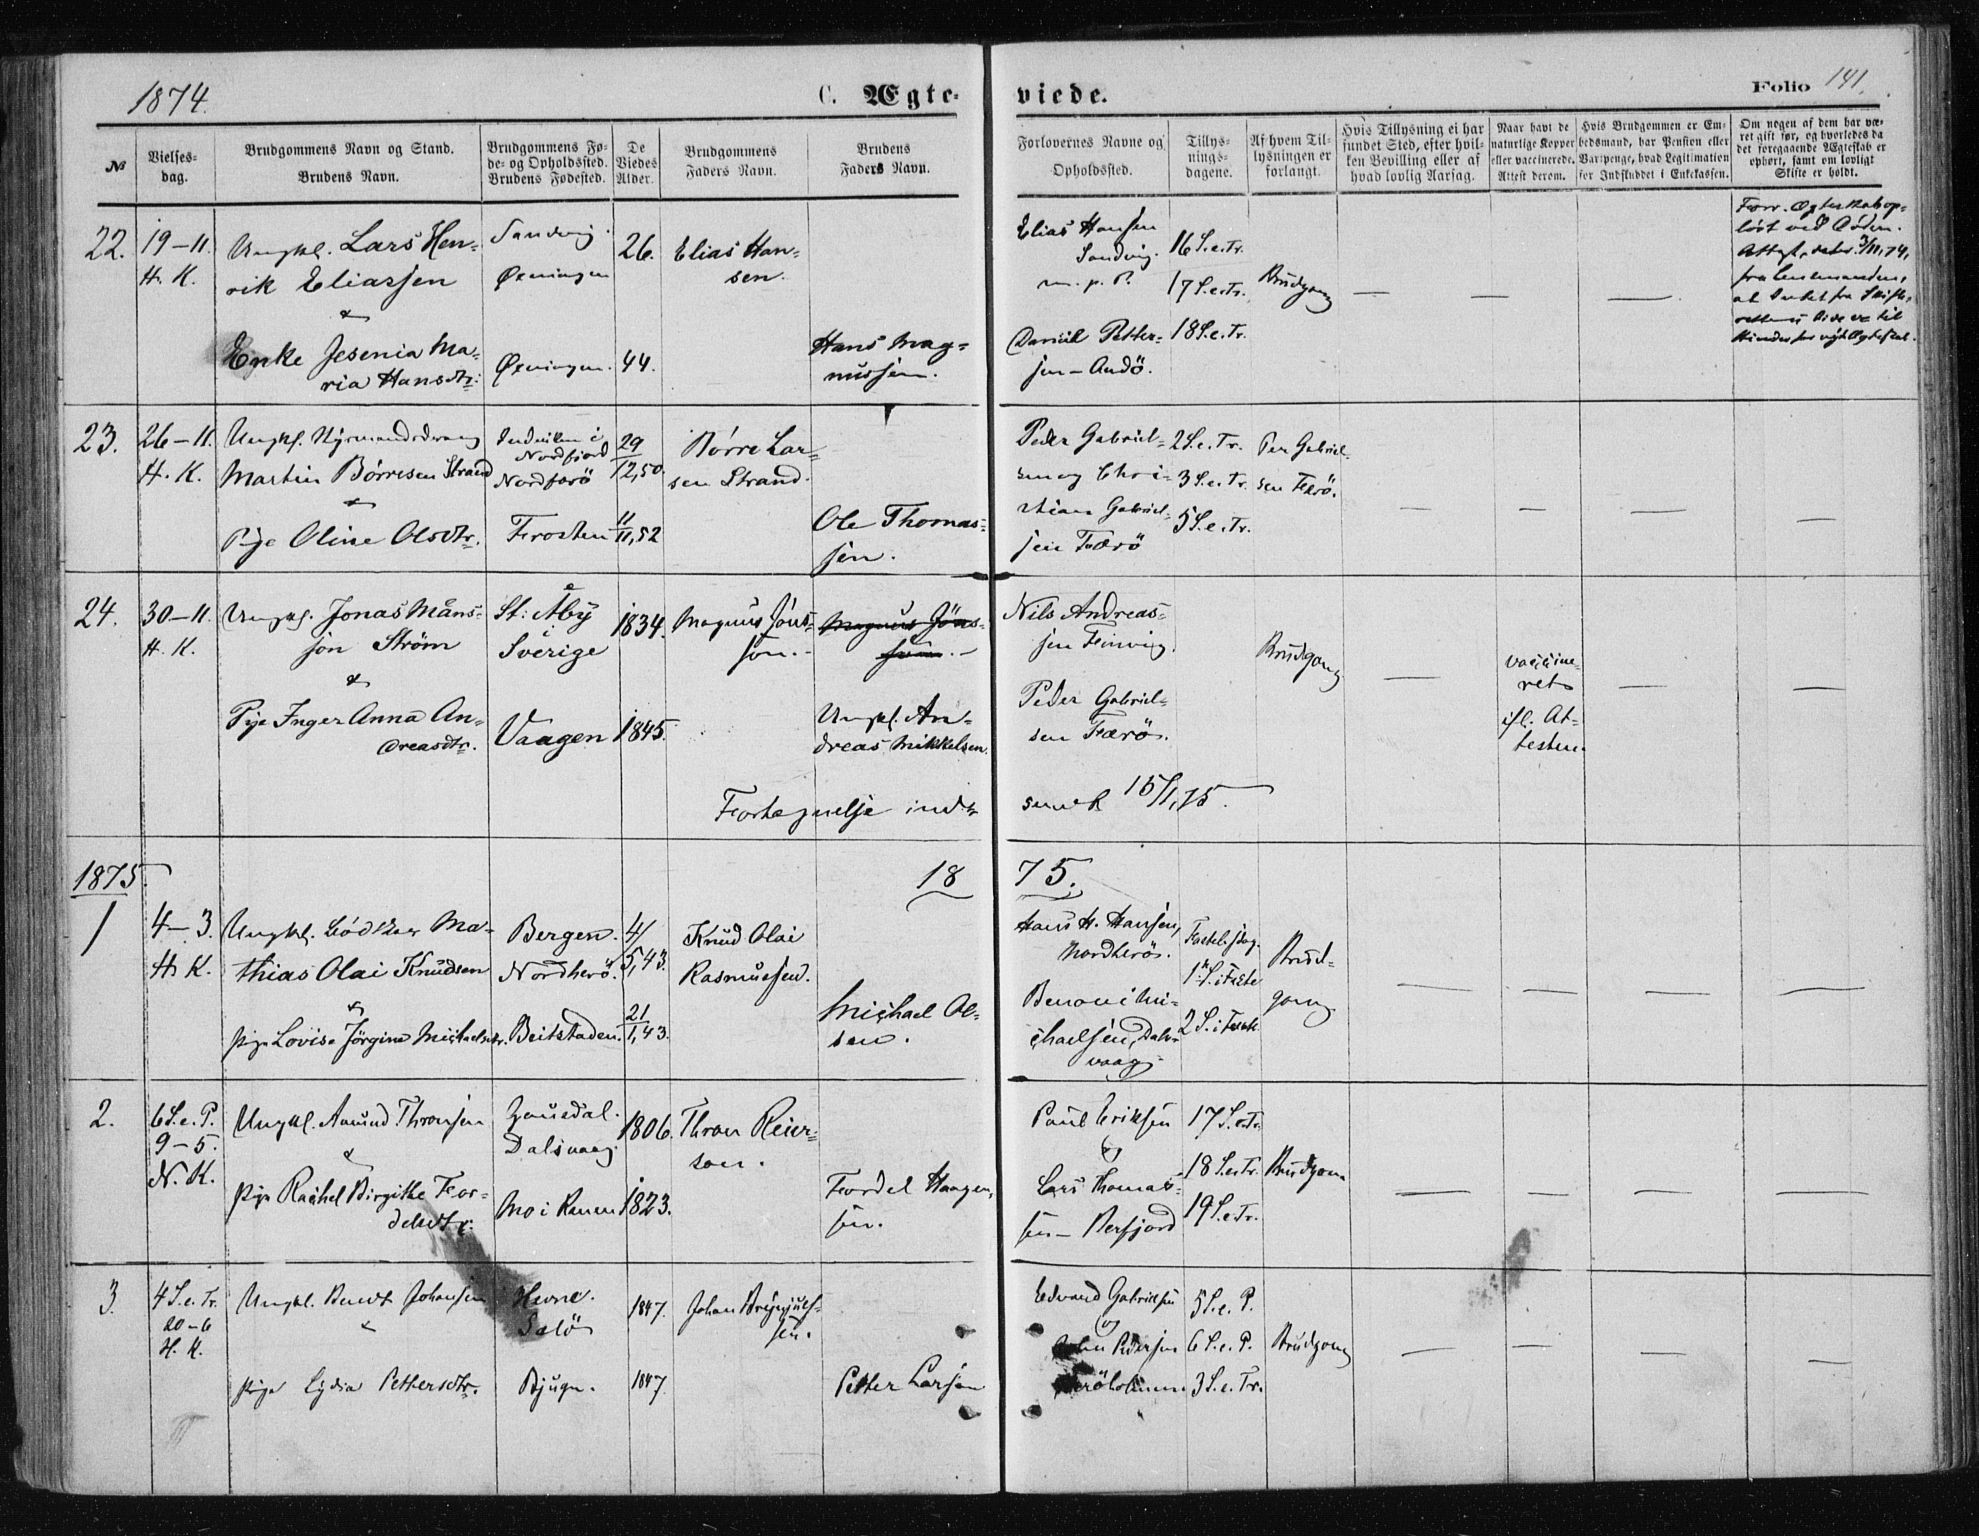 1874.
C. Ægte-
viede.
Folio 141.
No
Vielses-
dag.
Brudgommens Navn og Stand.
Brudens Navn.
Brudgommens Fø-
de- og Opholdssted.
Brudens Fødested.
De
Viedes
Alder.
Brudgommens
Faders Navn.
Brudens
Faders Navn.
Forlovernes Navne og
Opholdssted.
Tillys-
nings-
dagene.
Af hvem Til-
lysningen er
forlangt.
Hvis Tillysning ei har
fundet Sted, efter hvil-
ken Bevilling eller af
hvad lovlig Aarsag.
Naar havt de
naturlige Kopper
eller vaccinerede.
Attest derom.
Hvis Brudgommen er Em-
bedsmand, har Pension eller
Vartpenge, hvad Legitimation
for Indskuddet i Enkekassen.
Om nogen af dem har væ-
ret gift før, og hvorledes da
det foregaaende Ægteskab er
ophørt, samt om lovligt
Skifte er holdt.
22.
19-11.
H. K.
Ungkl. Lars Hen-
rik Eliassen
&
Enke Jesenia Ma-
ria Hansdtr:
Sandvig.
Øxningen
Øxningen.
26.
44.
Elias Han-
sen.
Hans Mag-
nussen.
Elias Hansen
Sandvig.
m. p. P.
Daniel Petter-
sen - Andö.
16 S.e.Tr.
17 S.e.Tr.
18 S.e.Tr.
Brudgom
Forr. Ægteskab op-
löst ved Døden.
Attest, dater. 3/11,74,
fra Lensmanden,
23.
26-11.
H. K.
Ungkl. Styrmand
Martin Børresen Strand
&
Pige Oline Olsdtr.
Indviken i
Nordfjord
Nordferö
Frosten
29/12,50.
11/11,52
Børre Lar-
sen Strand.
Ole Thomas-
sen.
Peder Gabriel-
sen og Chri-
stian Gabriel-
sen Færö
2 S.e.Tr.
3 S.e.Tr.
5 S.e.Tr.
Per Gabriel-
sen Færö.
24.
30-11.
H. K.
Ungkl. Jonas Måns-
son Ström
&
Pige Inger Anna An-
dreasdtr.
St: Åby
Sverige
Vaagen
1834.
1845.
Magnus Jöns-
son.
Magnus Jöns-
son.
Ungkl. An-
dreas Mikkelsen.
Nils Andreas-
sen Finvig.
Peder Gabriel-
sen Færö.
Brudgom
vaccine-
ret
ifl. At-
testen.
Fortegnelse ind-
sendt 15/1,75.
1875.
18
75.
1
4-3.
H. K.
Ungkl. Bödker Ma-
thias Olai Knudsen
&
Pige Lovise Jörgine Michaelsdtr.
Bergen.
Nordherö.
Beitstaden.
4/5,43.
21/1,43.
Knud Olai
Rasmussen.
Michael Ol-
sen.
Hans H. Hansen,
Nordherö.
Benoni Mi-
chaelsen, Dals-
vaag.
Fastel.sdag.
1. S. i Faste
2 S. i Faste
Brud-
gom.
2.
6 S.e.P.
9-5.
N. K.
Ungkl. Amund Thronsen
&
Pige Rachel Birgitke For-
delsdtr.
Dalsvaag
Mo i Ranen
1806.
1823.
Thron Reier-
sen.
Fordel Haagen-
sen.
Paul Eriksen
og
Lars Thomas-
sen - Berfjord
17 S.e.Tr.
18 S.e.Tr.
19 S.e.Tr.
Brudgom
3.
4 S.e.Tr.
20-6
H. K.
Ungkl. Bendt Johansen
&
Pige Lydia Pettersdtr.
Hevne.
Selö
Bjugn.
1847.
1847.
Johan Brynjulf-
sen.
Petter Larsen
Edvard Gabrielsen
og
Pedersen
5 S.e.P.
6 S.e.P.
3 S.e.Tr.
Brudgom